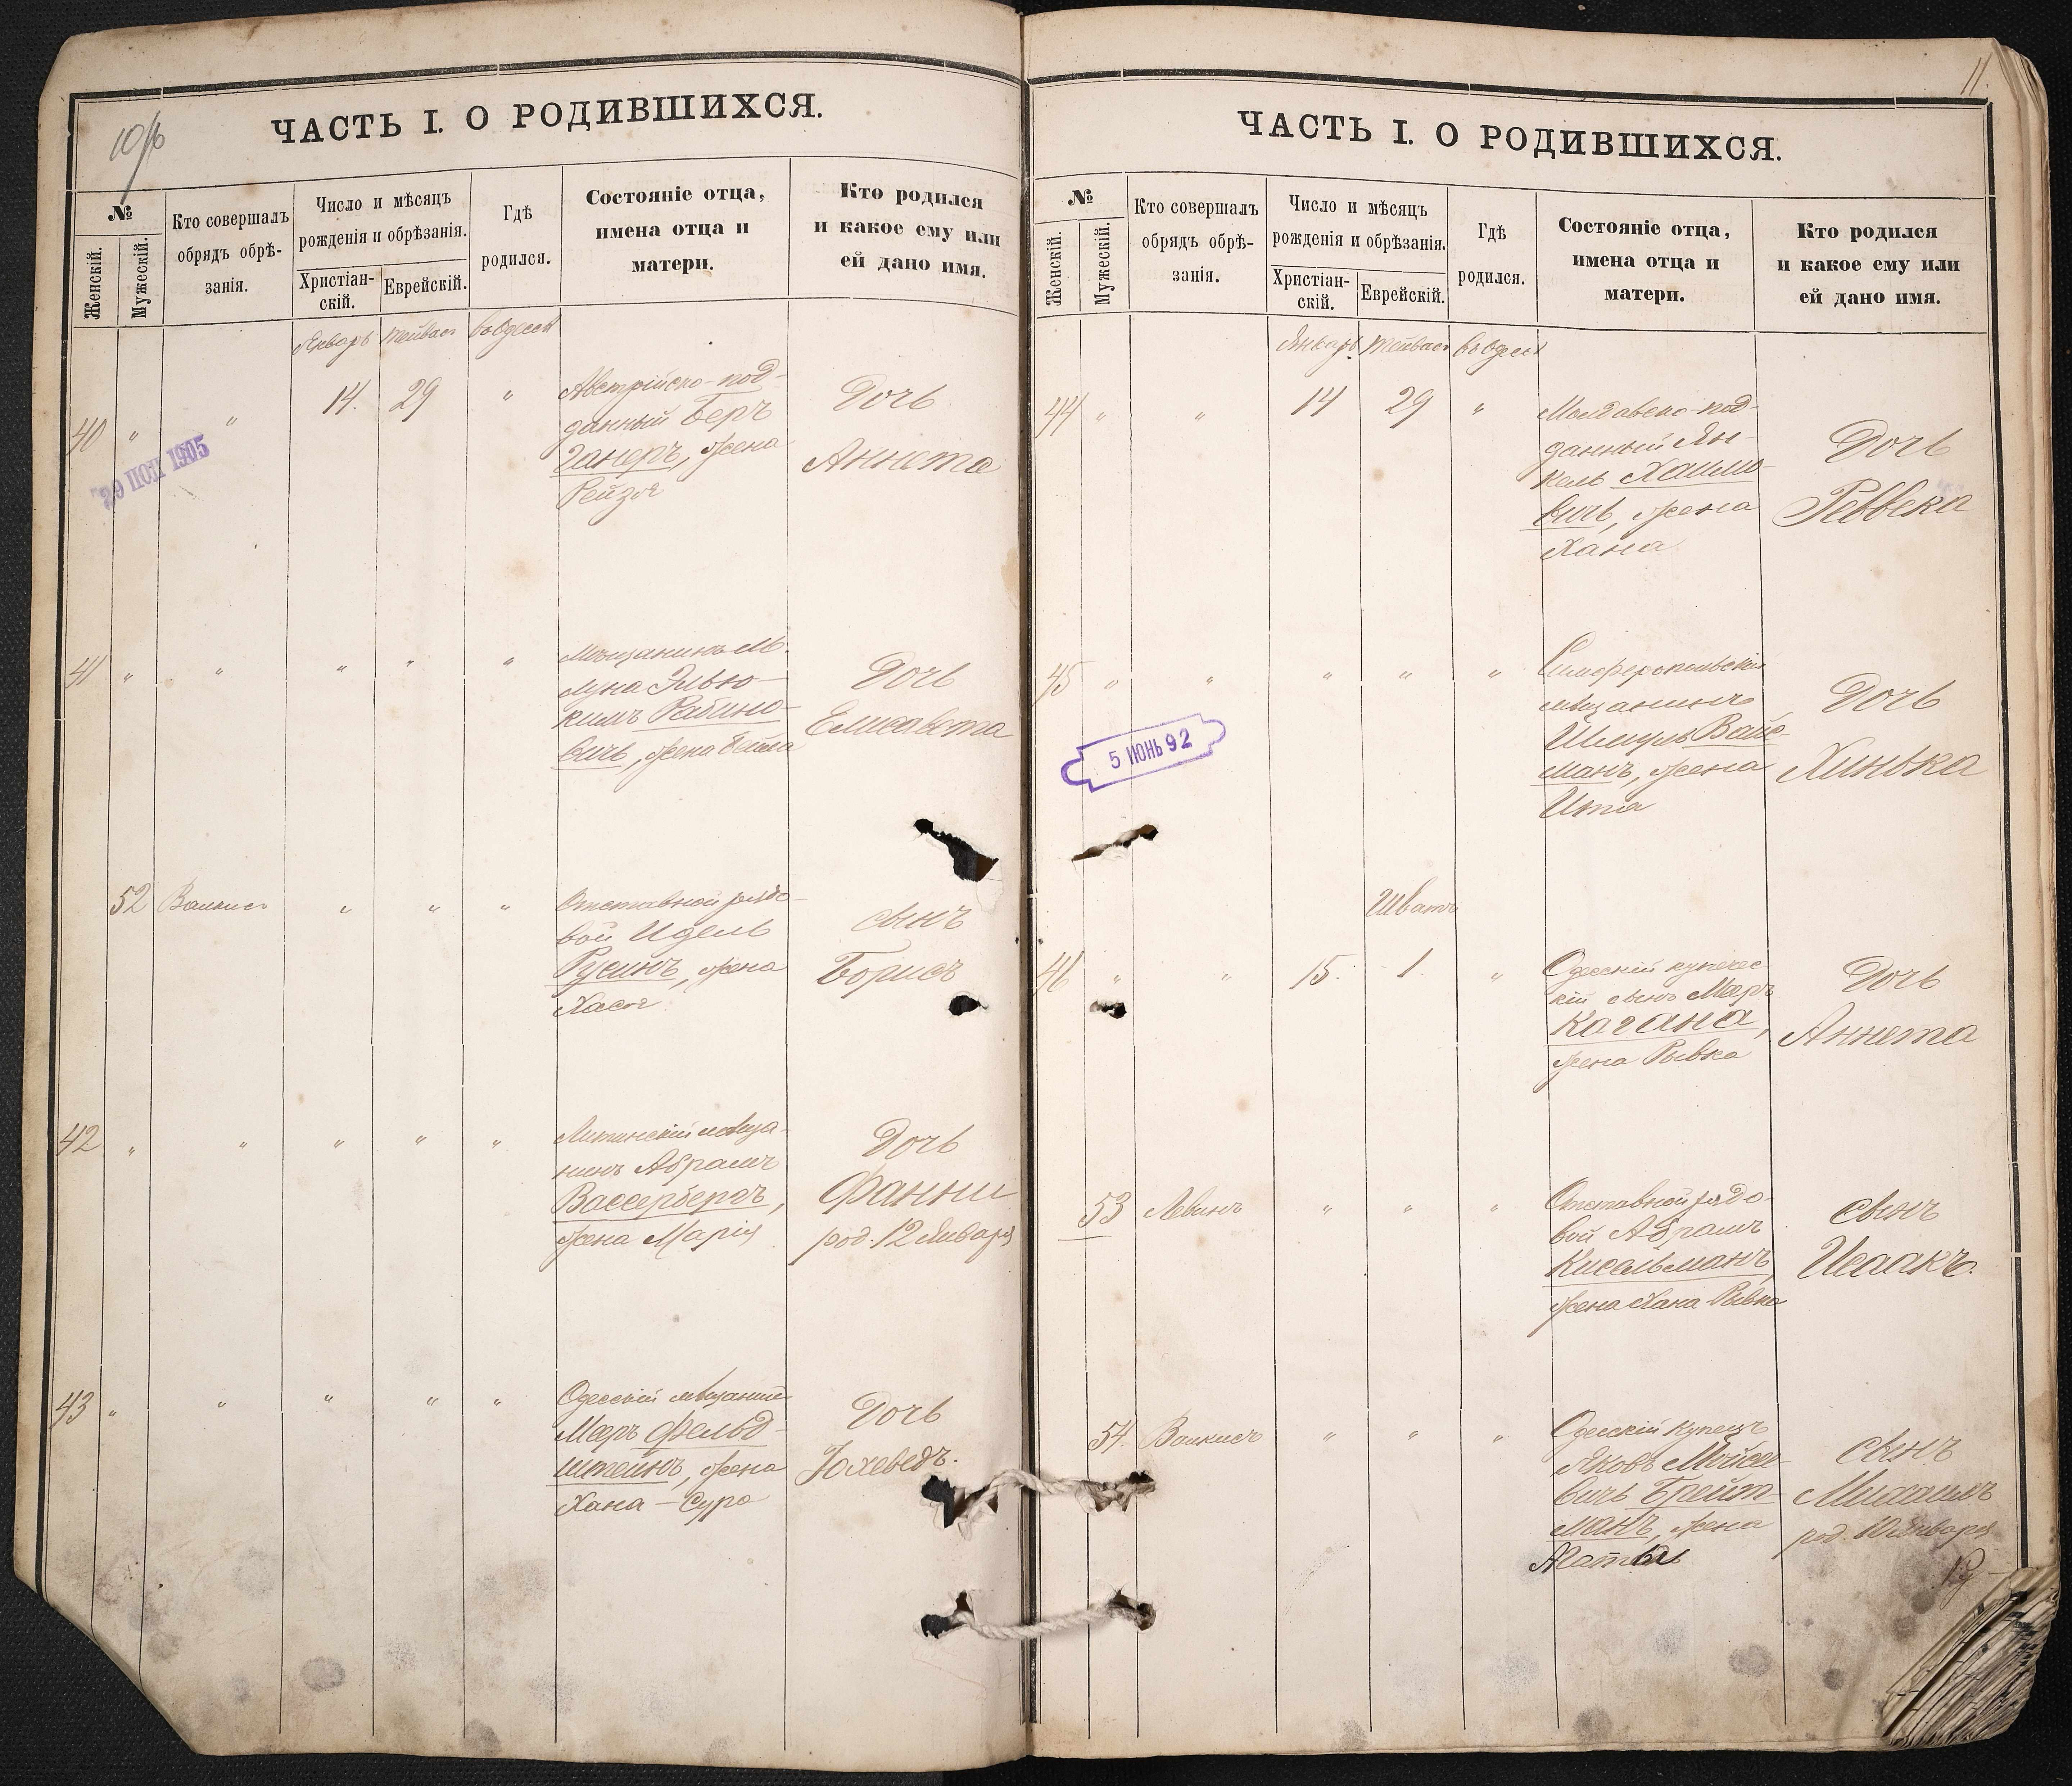 10/б
ЧАСТЬ I. О РОДИВШИХСЯ.
№
Женскій.
Мужескій.
Кто совершалъ
обрядъ обрѣ-
занія.
Число и мѣсяцъ
рожденія и обрѣзанія.
Христіан-
скій.
Еврейскій.
Гдѣ
родился.
Состояніе отца,
имена отца и
матери.
Кто родился
и какое ему или
ей дано имя.
Январь Тейвас во Одессѣ
40 " " 14. 29 "
Австрійско-под-
данный Беръ
Ганеръ, жена
Рейзя
Дочь
Аннета
29 ІЮЛ 1905
41 " " " " "
Мѣщанинъ М.
Луна Эльо-
кимъ Рабино-
вичъ, жена Бейла
Дочь
Елисавета
52 Валкис " " "
Отставной рядо-
вой Идель
Русинъ, жена
Хася
сынъ
Борисъ
42 " " " " "
Литинскій мѣща-
нинъ Абрамъ
Вассербергъ,
жена Марія
Дочь
Фанни
род. 12 Января
43 " " " " "
Одесскій мѣщанинъ
Меръ Фельд-
штейнъ, жена
Хана-Сура
Дочь
Юхеведъ.
11.
ЧАСТЬ I. О РОДИВШИХСЯ.
№
Женскій.
Мужескій.
Кто совершалъ
обрядъ обрѣ-
занія.
Число и мѣсяцъ
рожденія и обрѣзанія.
Христіан-
скій.
Еврейскій.
Гдѣ
родился.
Состояніе отца,
имена отца и
матери.
Кто родился
и какое ему или
ей дано имя.
Январь Тейвас во Одессѣ
44 " " 14 29 "
Молдавско-под-
данный Ян-
кель Хаимо-
вичъ, жена
Хана
Дочь
Реввека
45 " " " " "
Симферопольскій
мѣщанинъ
Шмуль Вайс-
манъ, жена
Ита
Дочь
Хинька
5 ІЮНЬ 92
Шватъ
46 " " 15. 1. "
Одесскій купечес
кій сынъ Меръ
Кагана,
жена Рывка
Дочь
Аннета
53 Левинъ " " "
Отставной рядо-
вой Абрамъ
Кисельманъ,
жена Хана Рывка
сынъ
Исаакъ.
54. Валкисъ " " "
Одесскій купецъ
Яковъ Мойсе-
вичъ Брейт-
манъ, жена
сынъ
Михаилъ
род. Января